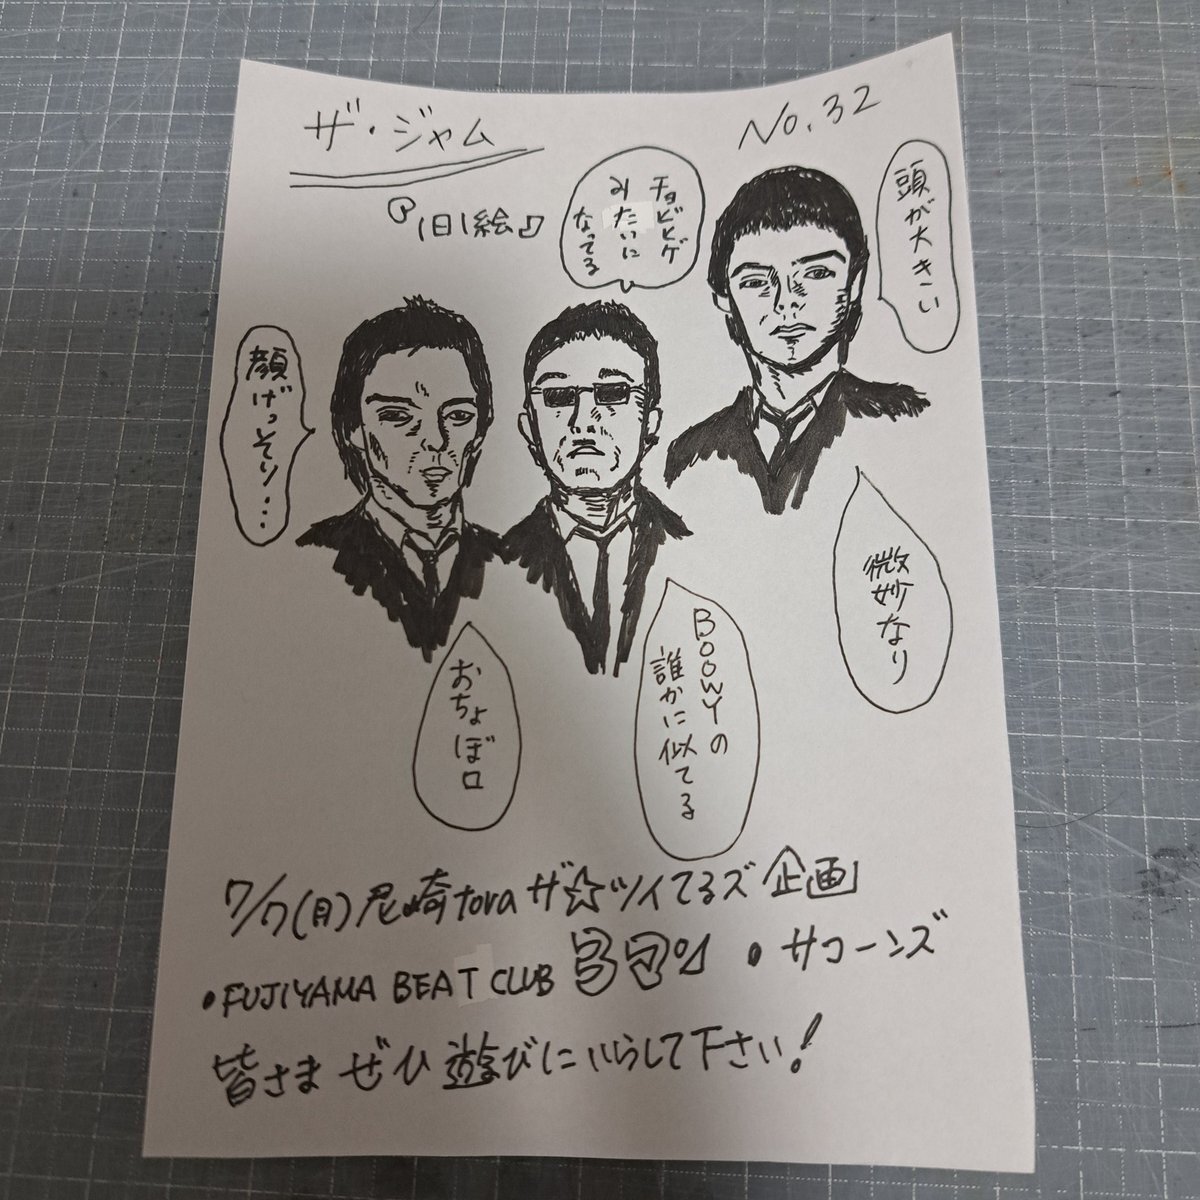 ザ・ジャム
No.32
『1日1絵』
チョビヒゲ
みたいに
なってる
頭が大きい
顔げっそり・・・
微妙なり
BOOWYの
誰かに似てる
おちょぼ口
7/7(月)尼崎tora ザ☆ツイてるズ 企画
・FUJIYAMA BEAT CLUB
・サコーンズ
皆さま ぜひ 遊びにいらして下さい!